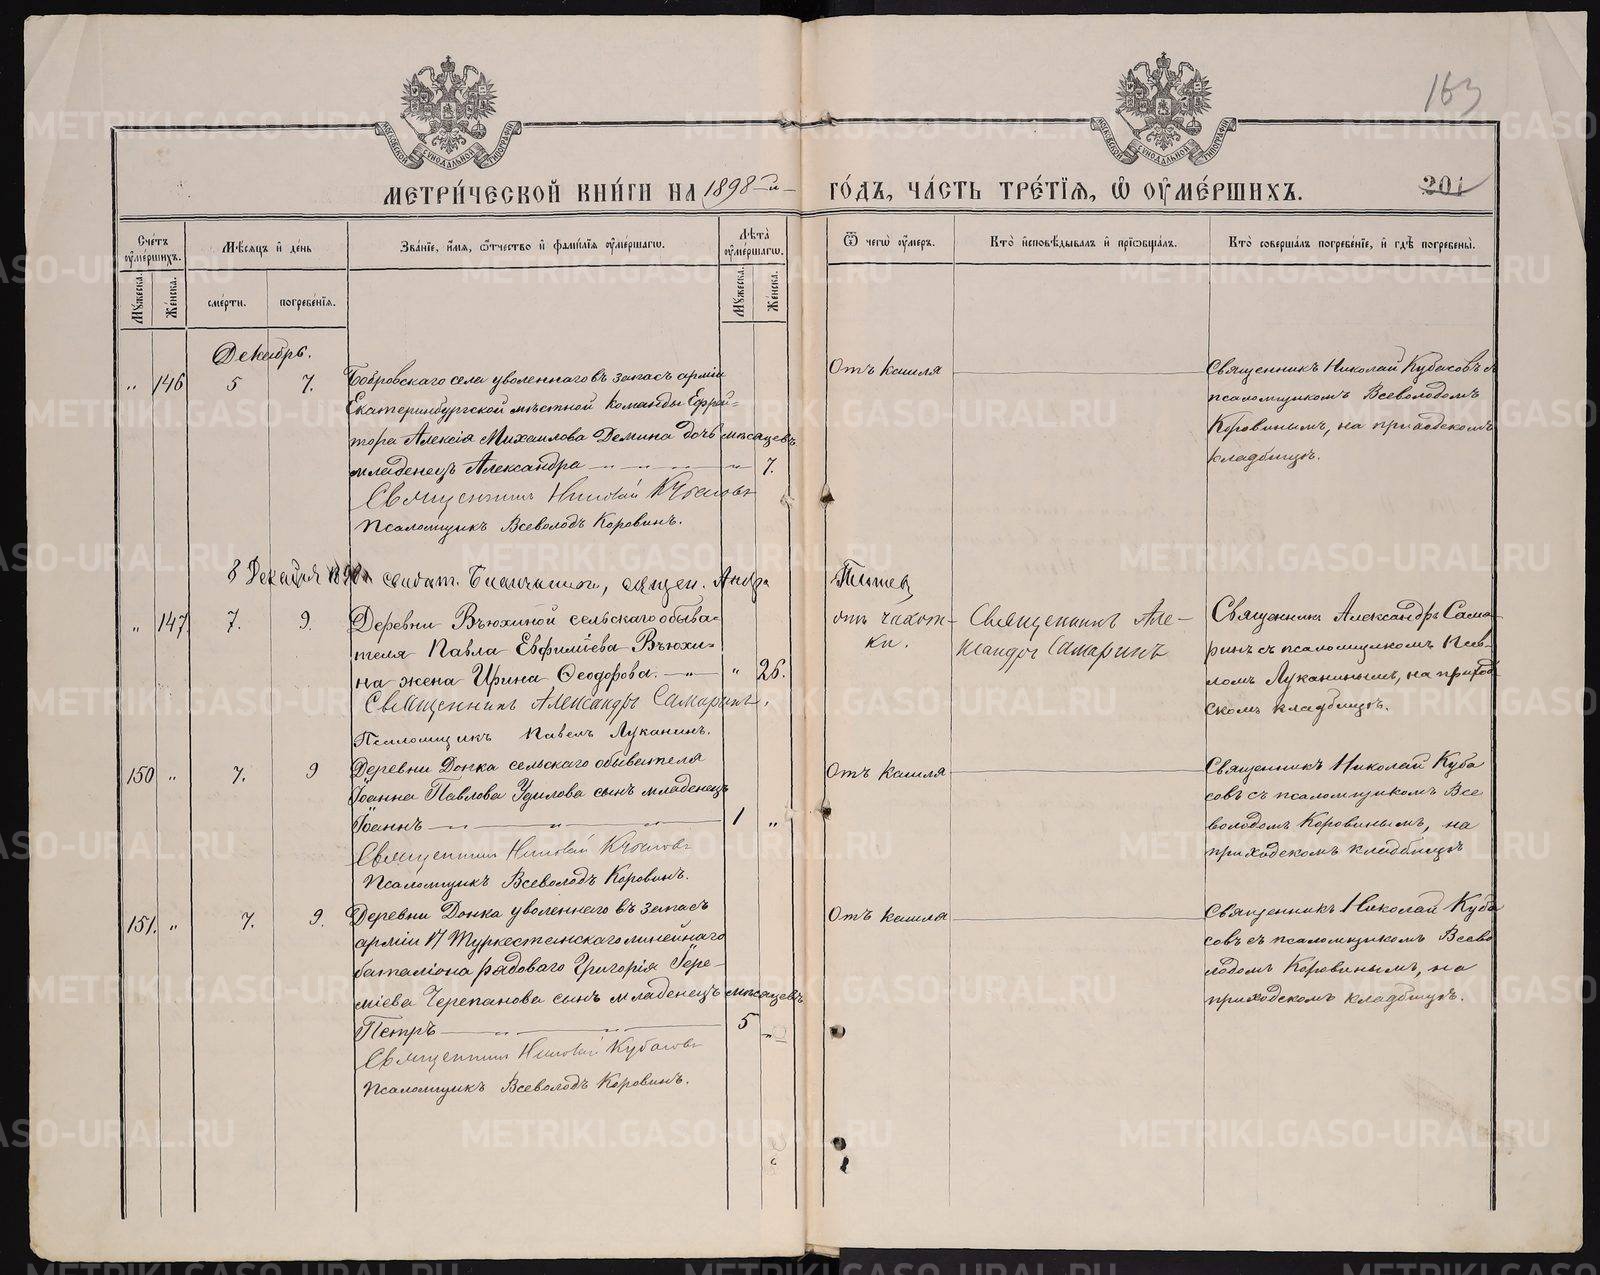 163
МОСКОВСКОЙ СѴНОДАЛЬНОЙ ТИПОГРАФІИ
МОСКОВСКОЙ СѴНОДАЛЬНОЙ ТИПОГРАФІИ
МЕТРИ́ЧЕСКОЙ КНИ́ГИ НА 1898-й
ГО́ДЪ, ЧА́СТЬ ТРЕ́ТІЯ, Ѡ҆ ОУ҆МЕ́РШИХЪ.
201
Сче́тъ оу҆ме́ршихъ.
Мѣ́сяцъ и҆ де́нь
Зва́ніе, и҆́мя, ѻ҆́тчество и҆ фами́лія оу҆ме́ршагѡ.
Лѣ́та оу҆ме́ршагѡ.
Ѿ чегѡ̀ оу҆́меръ.
Кто̀ и҆сповѣ́дывалъ и҆ прїѡбща́лъ.
Кто̀ соверша́лъ погребе́нїе, и҆ гдѣ̀ погребены̀.
Мꙋ́жеска.
Же́нска.
сме́рти.
погребе́нїѧ.
Мꙋ́жеска.
Же́нска.
Декабрь.
" 146 5 7. Бобровскаго села уволеннаго въ запасъ арміи
Екатеринбургской мѣстной команды Ефрей-
тора Алексія Михаилова Демина дочь мѣсяцевъ
младенецъ Александра — " — " — " — " 7.
Священникъ Николай Кубасовъ
Псаломщикъ Всеволодъ Коровинъ.
Отъ кашля
Священникъ Николай Кубасовъ съ
псаломщикомъ Всеволодомъ
Коровинымъ, на приходскомъ
кладбищѣ.
8 Декабря 1898
" 147. 7. 9. Деревни Вьюхиной сельскаго обыва-
теля Павла Евфиміева Вьюхи-
на жена Ирина Ѳеодорова. — " — " 26.
Священникъ Александръ Самаринъ.
Псаломщикъ Павелъ Луканинъ.
отъ чахот-
ки.
Священникъ Але-
ксандръ Самаринъ
Священникъ Александръ Сама-
ринъ съ псаломщикомъ Пав-
ломъ Луканинымъ, на приход-
скомъ кладбищѣ.
150 " 7. 9 Деревни Донка сельскаго обывателя
Іоанна Павлова Удилова сынъ младенецъ
Іоаннъ — " — " — " — 1 "
Священникъ Николай Кубасовъ
Псаломщикъ Всеволодъ Коровинъ.
Отъ кашля
Священникъ Николай Куба
совъ съ псаломщикомъ Все
володомъ Коровинымъ, на
приходскомъ кладбищѣ
151. " 7. 9. Деревни Донка уволеннаго въ запасъ
арміи 17 Туркестанскаго линейнаго
баталіона рядоваго Григорія Іере-
міева Черепанова сынъ младенецъ мѣсяцевъ
Петръ — " — " — 5 "
Священникъ Николай Кубасовъ
Псаломщикъ Всеволодъ Коровинъ.
Отъ кашля
Священникъ Николай Куба
совъ съ псаломщикомъ Всево
лодомъ Коровинымъ, на
приходскомъ кладбищѣ.
METRIKI.GASO-URAL.RU